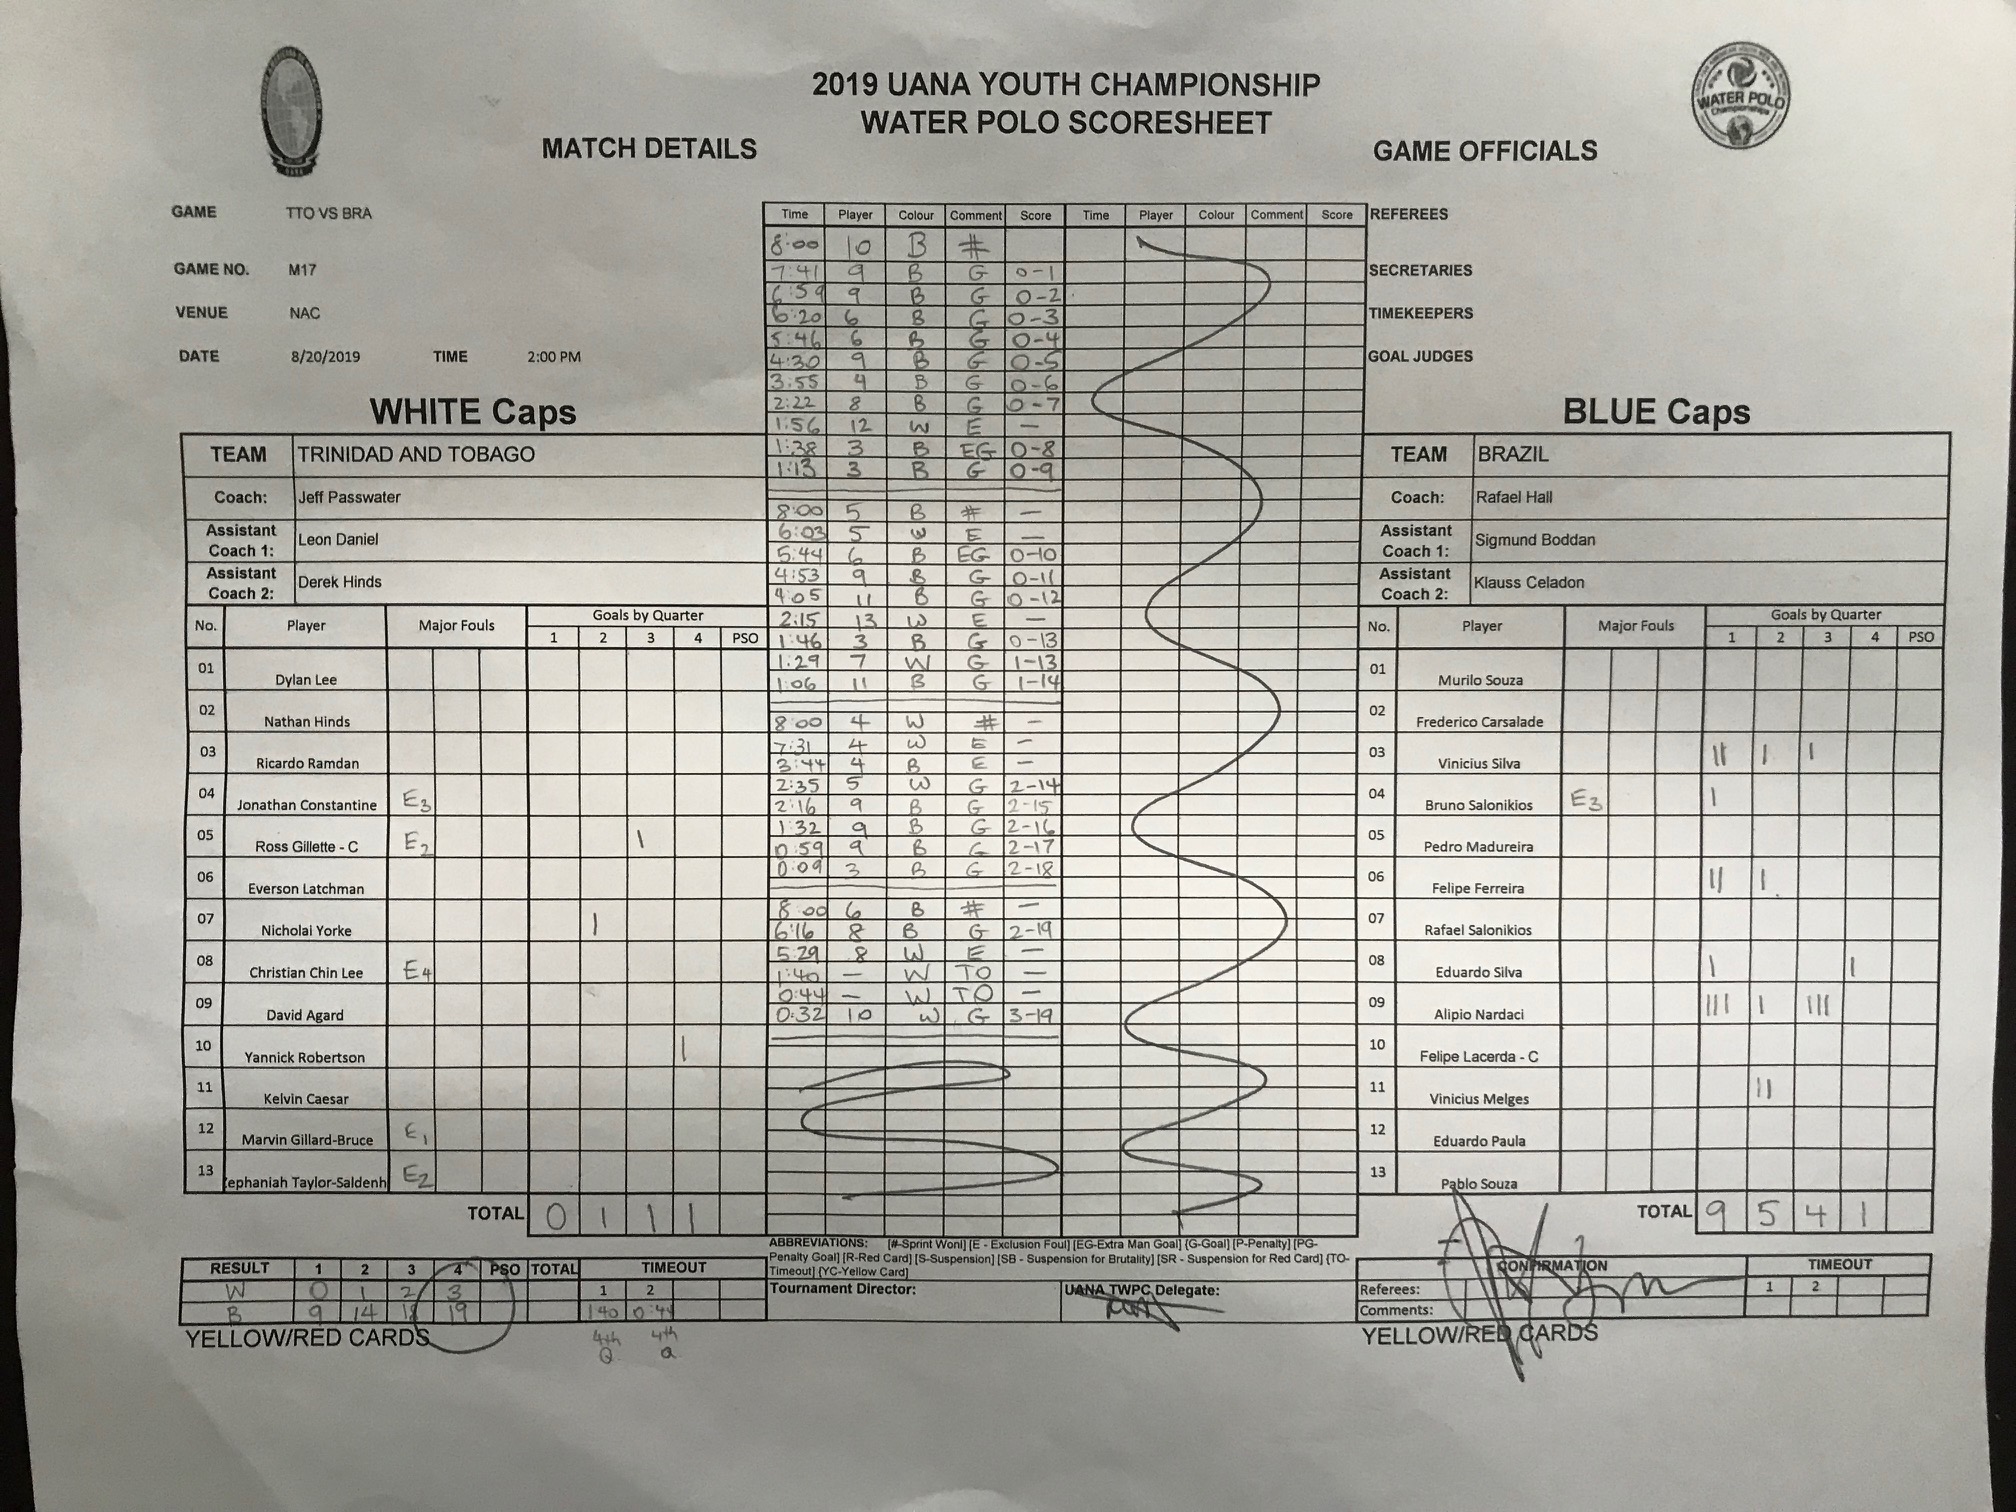 2019 UANA YOUTH CHAMPIONSHIP
WATER POLO SCORESHEET
WATER POLO
Championships
UANA
MATCH DETAILS
GAME OFFICIALS
GAME TTO VS BRA
GAME NO. M17
VENUE NAC
DATE 8/20/2019 TIME 2:00 PM
WHITE Caps
TEAM TRINIDAD AND TOBAGO
Coach: Jeff Passwater
Assistant Coach 1: Leon Daniel
Assistant Coach 2: Derek Hinds
No. Player Major Fouls Goals by Quarter
1 2 3 4 PSO
01 Dylan Lee
02 Nathan Hinds
03 Ricardo Ramdan
04 Jonathan Constantine E3
05 Ross Gillette - C E2 |
06 Everson Latchman
07 Nicholai Yorke |
08 Christian Chin Lee E4
09 David Agard
10 Yannick Robertson |
11 Kelvin Caesar
12 Marvin Gillard-Bruce E1
13 ephaniah Taylor-Saldenh E2
TOTAL 0 1 1 1
RESULT 1 2 3 4 PSO TOTAL TIMEOUT
1 2
W 0 1 2 3
B 9 14 18 19 1:40 0:44
4th Q 4th Q
YELLOW/RED CARDS
Time Player Colour Comment Score Time Player Colour Comment Score
8:00 10 B #
7:41 9 B G 0-1
6:59 9 B G 0-2
6:20 6 B G 0-3
5:46 6 B G 0-4
4:30 9 B G 0-5
3:55 4 B G 0-6
2:22 8 B G 0-7
1:56 12 W E —
1:38 3 B EG 0-8
1:13 3 B G 0-9
8:00 5 B # —
6:03 5 W E —
5:44 6 B EG 0-10
4:53 9 B G 0-11
4:05 11 B G 0-12
2:15 13 W E —
1:46 3 B G 0-13
1:29 7 W G 1-13
1:06 11 B G 1-14
8:00 4 W # -
7:31 4 W E -
3:44 4 B E -
2:35 5 W G 2-14
2:16 9 B G 2-15
1:32 9 B G 2-16
0:59 9 B G 2-17
0:09 3 B G 2-18
8:00 6 B # —
6:16 8 B G 2-19
5:29 8 W E —
1:40 — W TO —
0:44 — W TO —
0:32 10 W G 3-19
ABBREVIATIONS: [#-Sprint Wonl] [E - Exclusion Foul] [EG-Extra Man Goal] {G-Goal] [P-Penalty] [PG-
Penalty Goal] [R-Red Card] [S-Suspension] [SB - Suspension for Brutality] [SR - Suspension for Red Card] {TO-
Timeout] {YC-Yellow Card]
Tournament Director: UANA TWPC Delegate:
REFEREES
SECRETARIES
TIMEKEEPERS
GOAL JUDGES
BLUE Caps
TEAM BRAZIL
Coach: Rafael Hall
Assistant Coach 1: Sigmund Boddan
Assistant Coach 2: Klauss Celadon
No. Player Major Fouls Goals by Quarter
1 2 3 4 PSO
01 Murilo Souza
02 Frederico Carsalade
03 Vinicius Silva || | |
04 Bruno Salonikios E3 |
05 Pedro Madureira
06 Felipe Ferreira || |
07 Rafael Salonikios
08 Eduardo Silva | |
09 Alipio Nardaci ||| | |||
10 Felipe Lacerda - C
11 Vinicius Melges ||
12 Eduardo Paula
13 Pablo Souza
TOTAL 9 5 4 1
CONFIRMATION TIMEOUT
Referees: 1 2
Comments:
YELLOW/RED CARDS